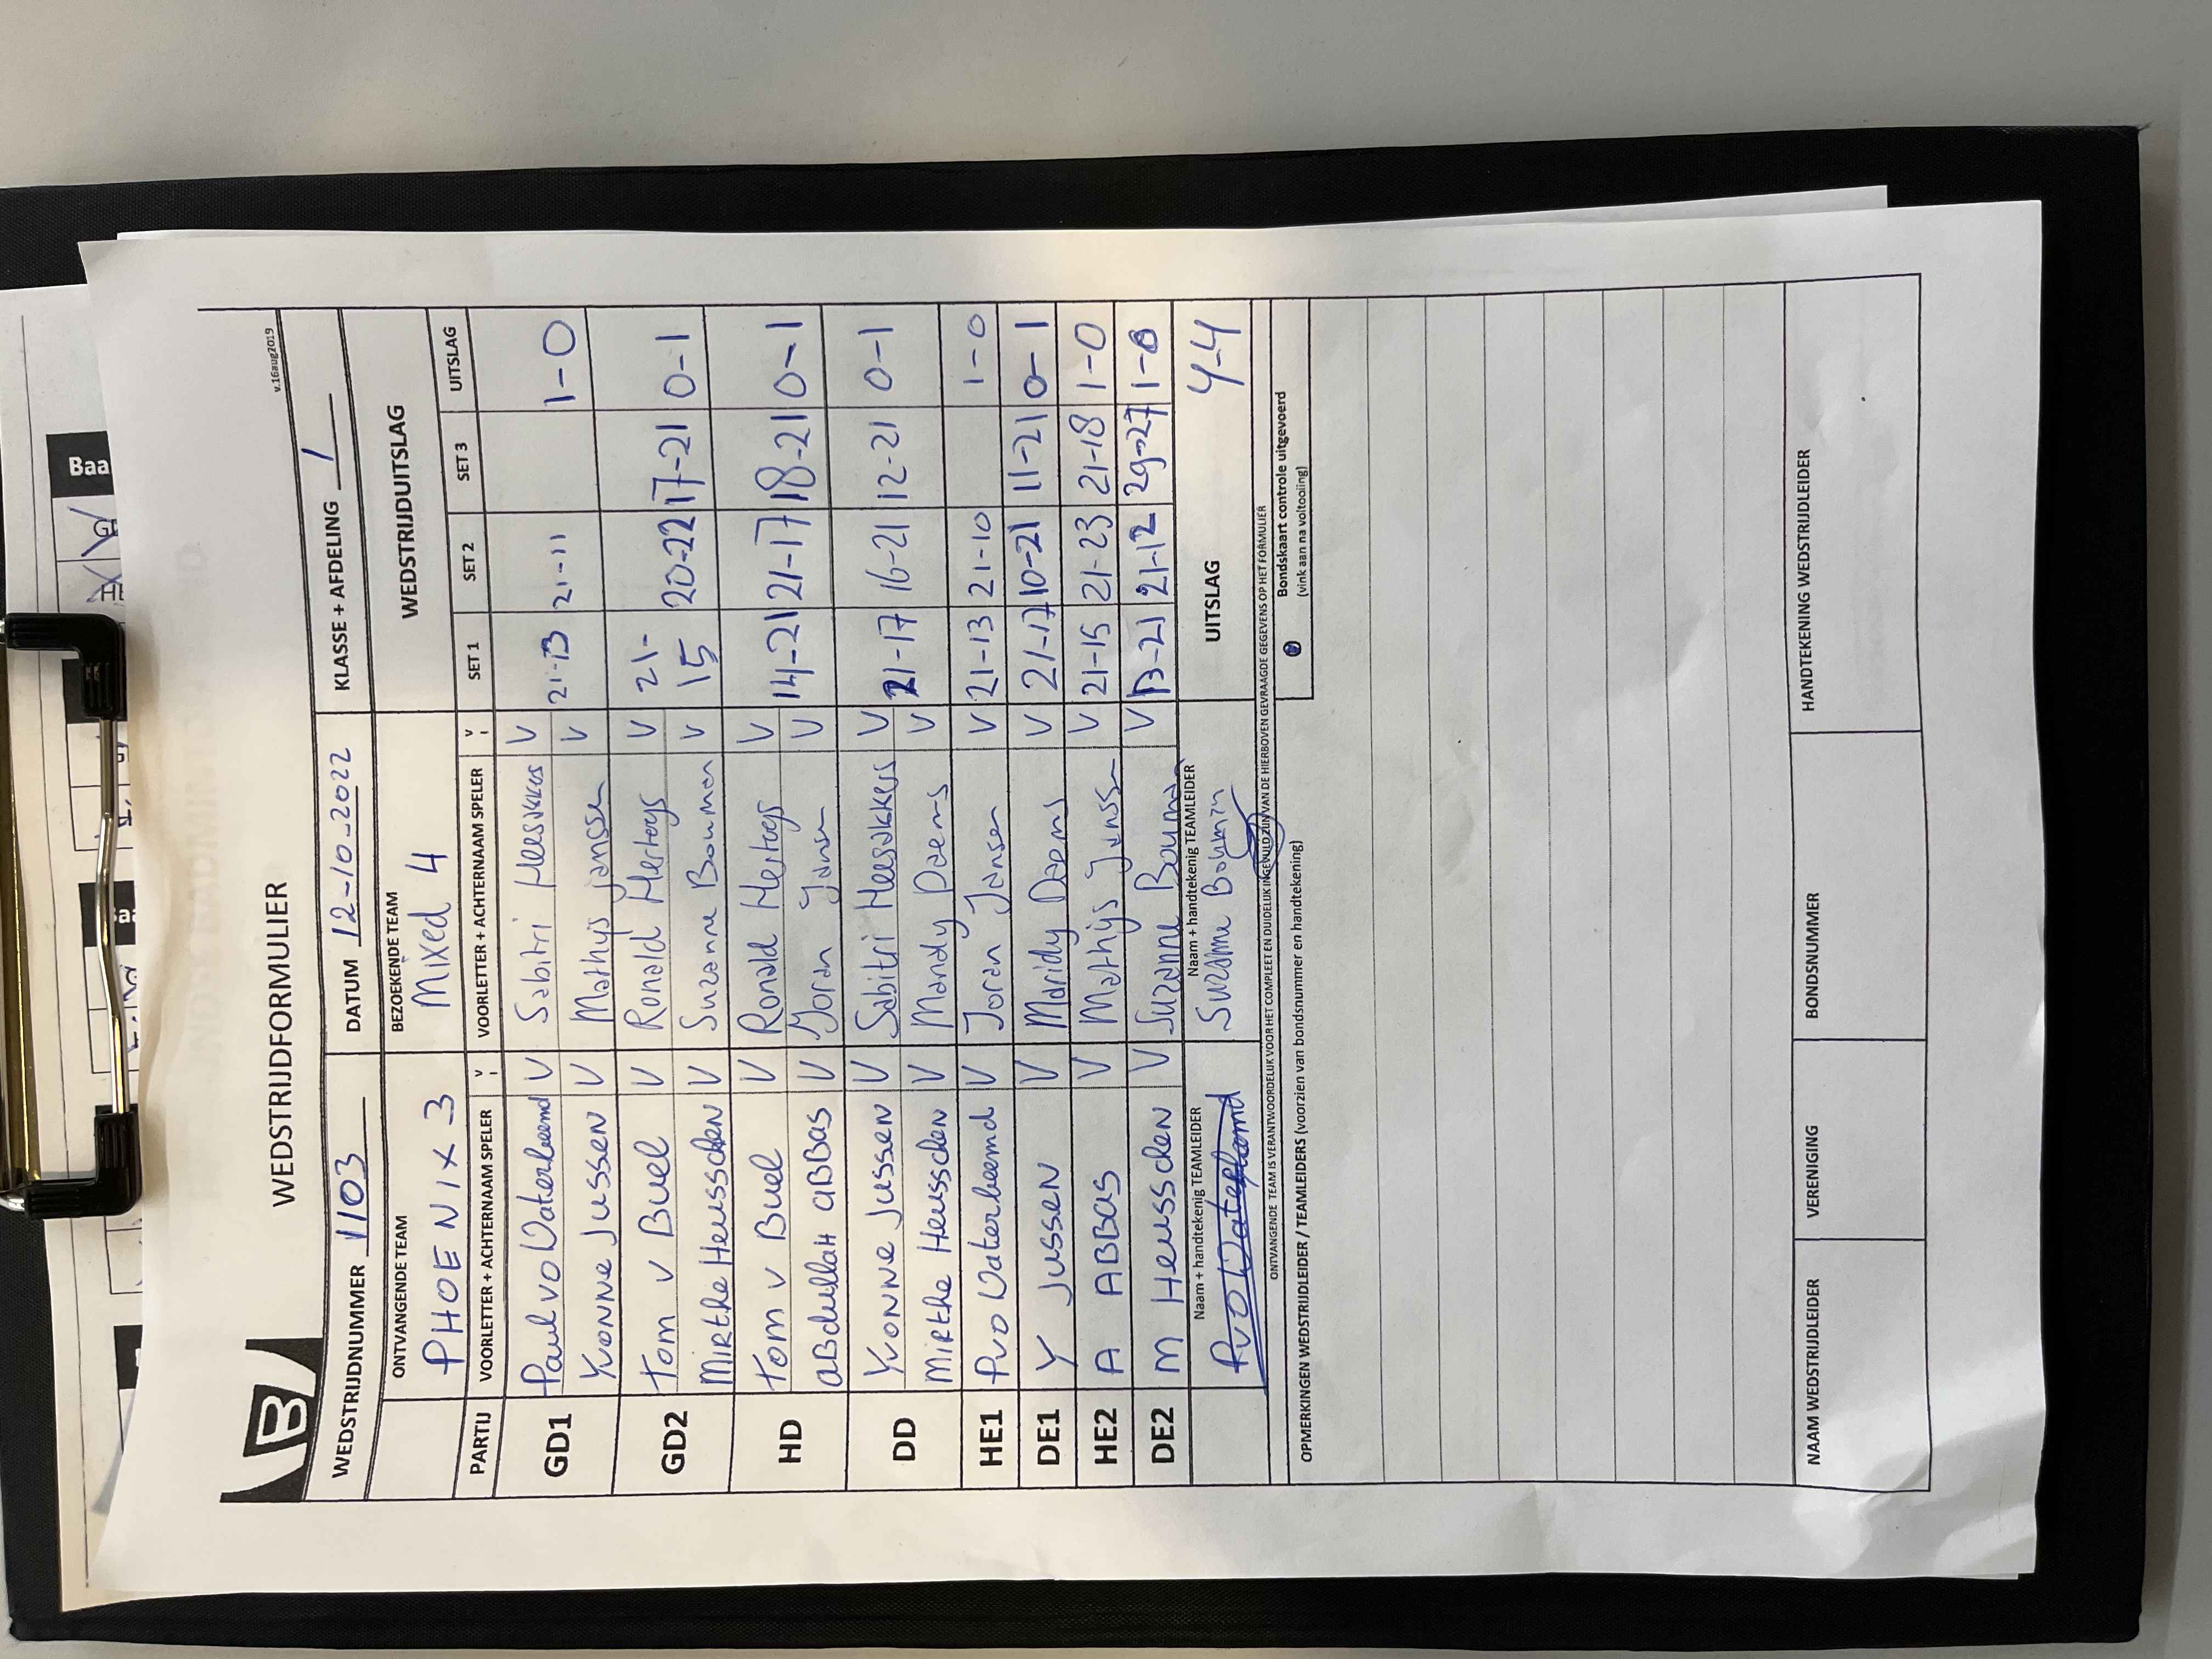 v.16aug2019
WEDSTRIJDFORMULIER
WEDSTRIJDNUMMER 1103 DATUM 12-10-2022 KLASSE + AFDELING 1
ONTVANGENDE TEAM BEZOEKENDE TEAM WEDSTRIJDUITSLAG
PHOENIX 3 Mixed 4
PARTIJ VOORLETTER + ACHTERNAAM SPELER V VOORLETTER + ACHTERNAAM SPELER V SET 1 SET 2 SET 3 UITSLAG
GD1 Paul vo Waterbeemd V Sabitri Heesakkers V 21-13 21-11 1-0
Yvonne Jussen V Mathijs Janssen V
GD2 Tom v Buel V Ronald Hertogs V 21-15 20-22 17-21 0-1
Mirthe Heusschen V Suzanne Bouman V
HD Tom v Buel V Ronald Hertogs V 14-21 21-17 18-21 0-1
Abdullah Abbas V Joran Jansen V
DD Yvonne Jussen V Sabitri Heesakkers V 21-17 16-21 12-21 0-1
Mirthe Heusschen V Mandy Daems V
HE1 P vo Waterbeemd V Joran Jansen V 21-13 21-10 1-0
DE1 Y Jussen V Mandy Daems V 21-17 10-21 11-21 0-1
HE2 A ABBAS V Mathijs Janssen V 21-15 21-23 21-18 1-0
DE2 M Heusschen V Suzanne Bouman V 13-21 21-12 29-27 1-0
Naam + handtekenig TEAMLEIDER Naam + handtekenig TEAMLEIDER UITSLAG 4-4
P vo Waterbeemd Suzanne Bouman
ONTVANGENDE TEAM IS VERANTWOORDELIJK VOOR HET COMPLEET EN DUIDELIJK INGEVULD ZIJN VAN DE HIERBOVEN GEVRAAGDE GEGEVENS OP HET FORMULIER
Bondskaart controle uitgevoerd
(vink aan na voltooiing)
OPMERKINGEN WEDSTRIJDLEIDER / TEAMLEIDERS (voorzien van bondsnummer en handtekening)
NAAM WEDSTRIJDLEIDER VERENIGING BONDSNUMMER HANDTEKENING WEDSTRIJDLEIDER
Baa